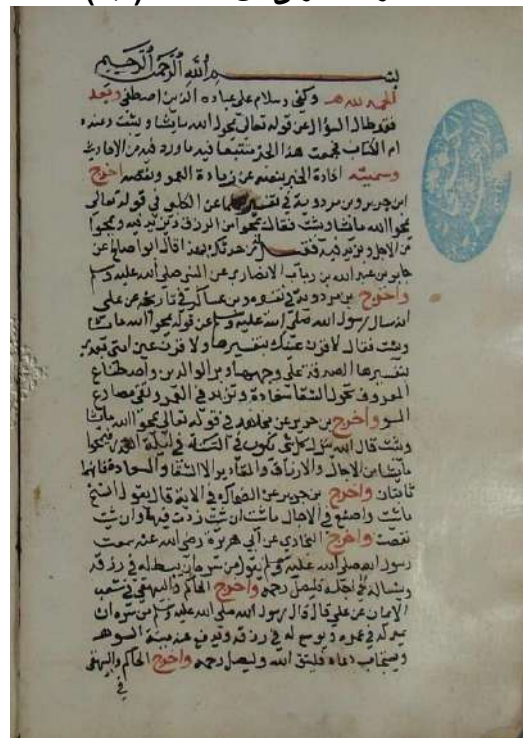 بسم الله الرحمن الرحيم
الحمد لله وكفى وسلام على عباده الذين اصطفى وبعد
فقد طال السؤال عن قوله تعالى يمحوا الله ما يشا ويثبت وعنده
ام الكتاب فجمعت هذا الجزء متتبعا فيه ما ورد فيه من الاحاديث
وسميته افادة الخبر بنصه عن زيادة العمر ونقصه اخرج
ابن جرير وبن مردوية في تفسير عن الكلبي في قوله تعالى
يمحوا الله ما يشا ويثبت فقال يمحوا من الرزق ويزيد فيه ويمحوا
من الاجل ويزيد فيه من حدثك بهذا قال ابو صالح عن
جابر بن عبد الله بن رياب الانصاري عن النبي صلى الله عليه وسلم
واخرج بن مردوية في تفسيره وبن عساكر في تاريخه عن علي
انه سال رسول الله صلى الله عليه وسلم عن قوله يمحوا الله ما يشا
ويثبت فقال لاقرن عينك بتفسيرها ولاقرن عين امتي بعدي
بتفسيرها الصدقة على وجهها وبر الوالدين واصطناع
المعروف يحول الشقا سعادة ويزيد في العمر ويقي مصارع
السو واخرج بن جرير عن مجاهد في قوله تعالى يمحوا الله ما يشا
ويثبت قال الله ينزل كل شي يكون في السنة في ليلة القدر فيمحوا
ما يشا من الاجال والارزاق والمقادير الا الشقا والسعادة فانهما
ثابتان واخرج بن جرير عن الضحاك في الاية قال يقول انسخ
ما شئت واصنع في الاجال ما شئت ان شئت زدت فيها وان شئت
نقصت واخرج البخاري عن ابي هريرة رضي الله عنه سمعت
رسول الله صلى الله عليه وسلم يقول من سره ان يبسط له في رزقه
وينسا له في اجله فليصل رحمه واخرج الحاكم والبيهقي في شعب
الايمان عن علي قال قال رسول الله صلى الله عليه وسلم من سره ان
يمد له في عمره ويوسع له في رزقه ويدفع عنه ميتة السوء
ويستجاب دعاه فليتق الله وليصل رحمه واخرج الحاكم والبيهقي
في